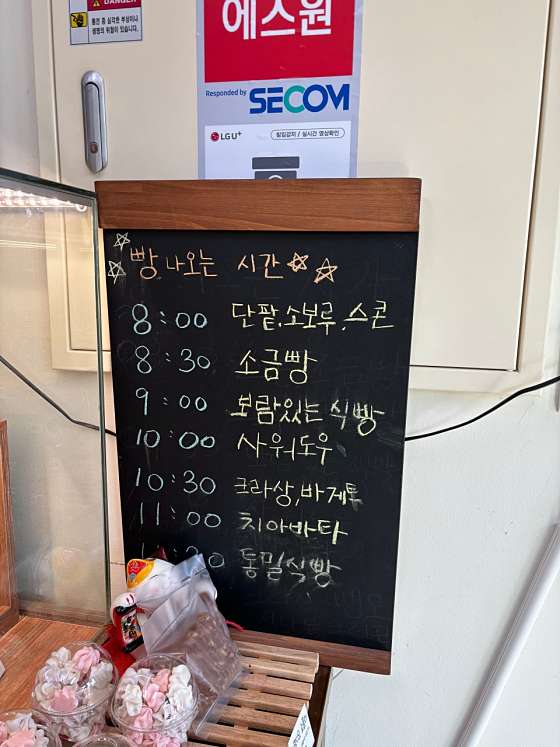 DANGER
운전 중 심각한 부상이나
생명의 위험이 있습니다.
에스원
Responded by SECOM
LG U+
침입감지 / 실시간 영상확인
빵 나오는 시간
8:00 단팥.소보루.스콘
8:30 소금빵
9:00 보람있는 식빵
10:00 사워도우
10:30 크라상,바게트
11:00 치아바타
통밀식빵